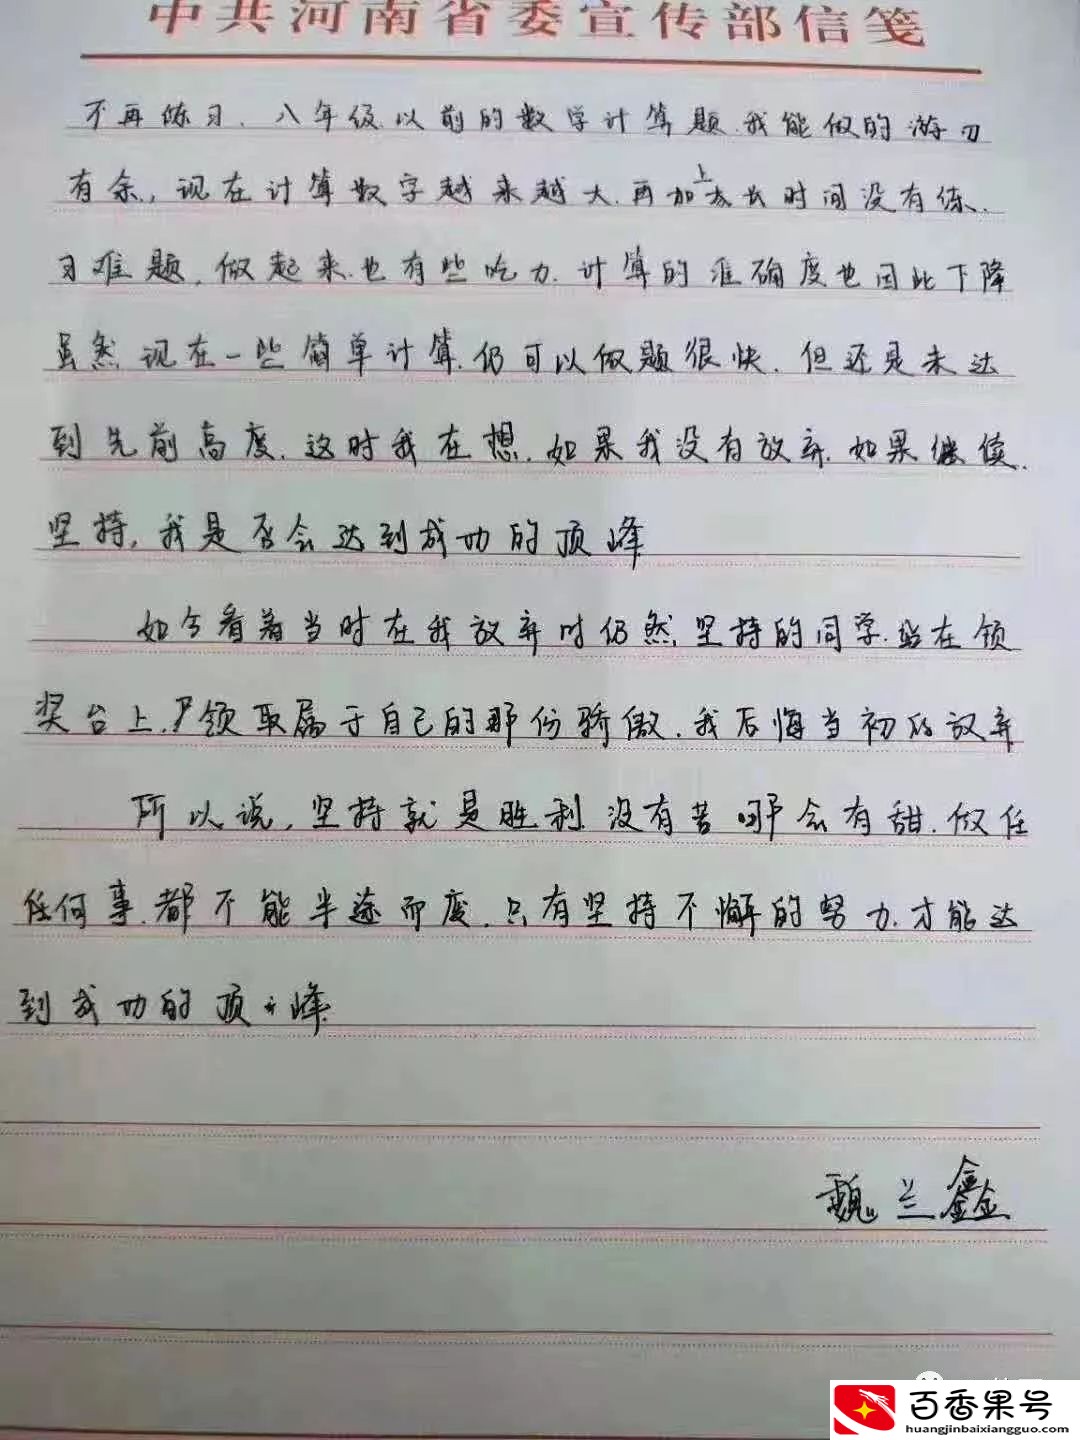 中共河南省委宣传部信笺
不再练习、八年级以前的数学计算题.我能做的游刃
有余,现在计算数字越来越大.再加上太长时间没有练.
习难题,做起来也有些吃力.计算的准确度也因此下降
虽然现在一些简单计算.仍可以做题很快.但还是未达
到先前高度.这时我在想.如果我没有放弃.如果继续.
坚持,我是否会达到成功的顶峰
如今看着当时在我放弃时仍然坚持的同学.站在领
奖台上.领取属于自己的那份骄傲.我后悔当初的放弃
所以说,坚持就是胜利.没有苦哪会有甜.做任
任何事.都不能半途而度.只有坚持不懈的努力.才能达
到成功的顶峰.
魏兰鑫
百香果号
huangjinbaixiangguo.com